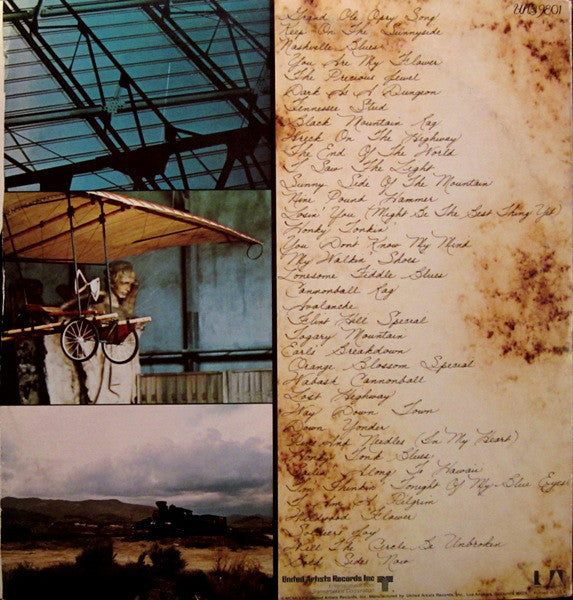 UAS 9801
Grand Ole Opry Song
Keep On The Sunnyside
Nashville Blues
You Are My Flower
The Precious Jewel
Dark As A Dungeon
Tennessee Stud
Black Mountain Rag
Wreck On The Highway
The End Of The World
I Saw The Light
Sunny Side Of The Mountain
Nine Pound Hammer
Losin You (Might Be The Best Thing Yet)
Honky Tonkin'
You Don't Know My Mind
My Walkin' Shoes
Lonesome Fiddle Blues
Cannonball Rag
Avalanche
Flint Hill Special
Togary Mountain
Earls Breakdown
Orange Blossom Special
Wabash Cannonball
Lost Highway
Way Down Town
Down Yonder
Pins And Needles (In My Heart)
Honky Tonk Blues
Along To Hawaii
I'm Thinking Tonight Of My Blue Eyes
I Am A Pilgrim
Wildwood Flower
Soldiers Joy
Will The Circle Be Unbroken
Both Sides Now
United Artists Records Inc